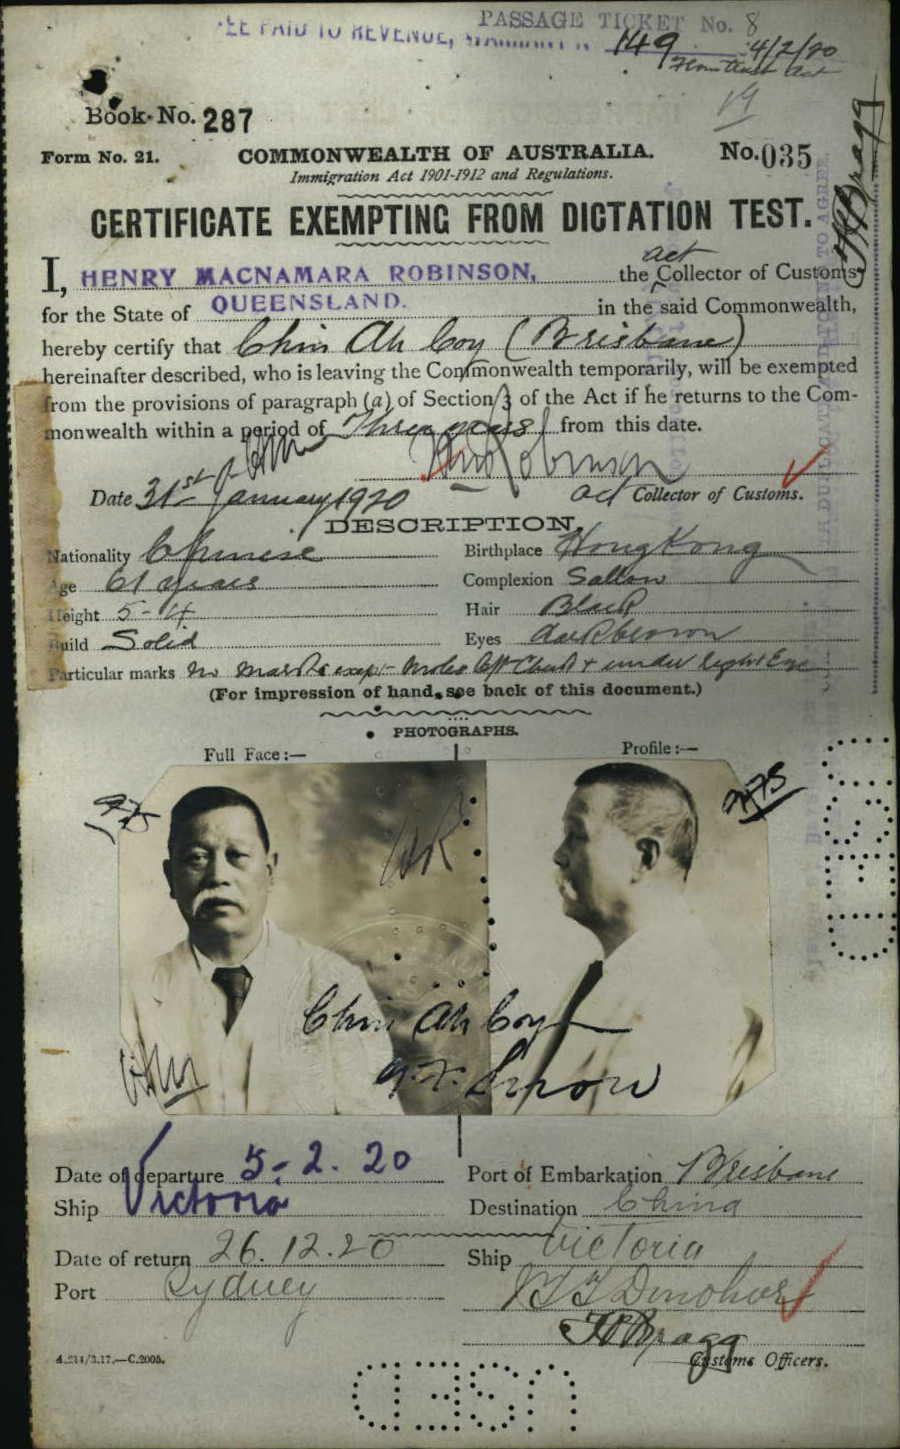 PASSAGE TICKET No. 8
FEE PAID TO REVENUE, WARRANT N
149 4/2/20
Book No. 287
Form No. 21. COMMONWEALTH OF AUSTRALIA. No. 035
Immigration Act 1901-1912 and Regulations.
CERTIFICATE EXEMPTING FROM DICTATION TEST.
act
I, HENRY MACNAMARA ROBINSON, the Collector of Customs
for the State of QUEENSLAND. in the said Commonwealth,
hereby certify that Chin Ah Coy (Brisbane)
hereinafter described, who is leaving the Commonwealth temporarily, will be exempted
from the provisions of paragraph (a) of Section 3 of the Act if he returns to the Com-
monwealth within a period of Three years from this date.
Robinson
Date 31st January 1920 act Collector of Customs.
DESCRIPTION.
Nationality Chinese Birthplace HongKong
Age 61 years Complexion Sallow
Height 5-4 Hair Black
Build Solid Eyes dark brown
Particular marks no marks except moles left Cheek + under right Eye
(For impression of hand, see back of this document.)
PHOTOGRAPHS.
Full Face:— Profile:—
Chin Ah Coy
Date of departure 5-2.20 Port of Embarkation Brisbane
Ship Victoria Destination China
Date of return 26.12.20 Ship Victoria
Port Sydney
Bragg
A.214/3.17.—C.2005. Customs Officers.
USED
USED